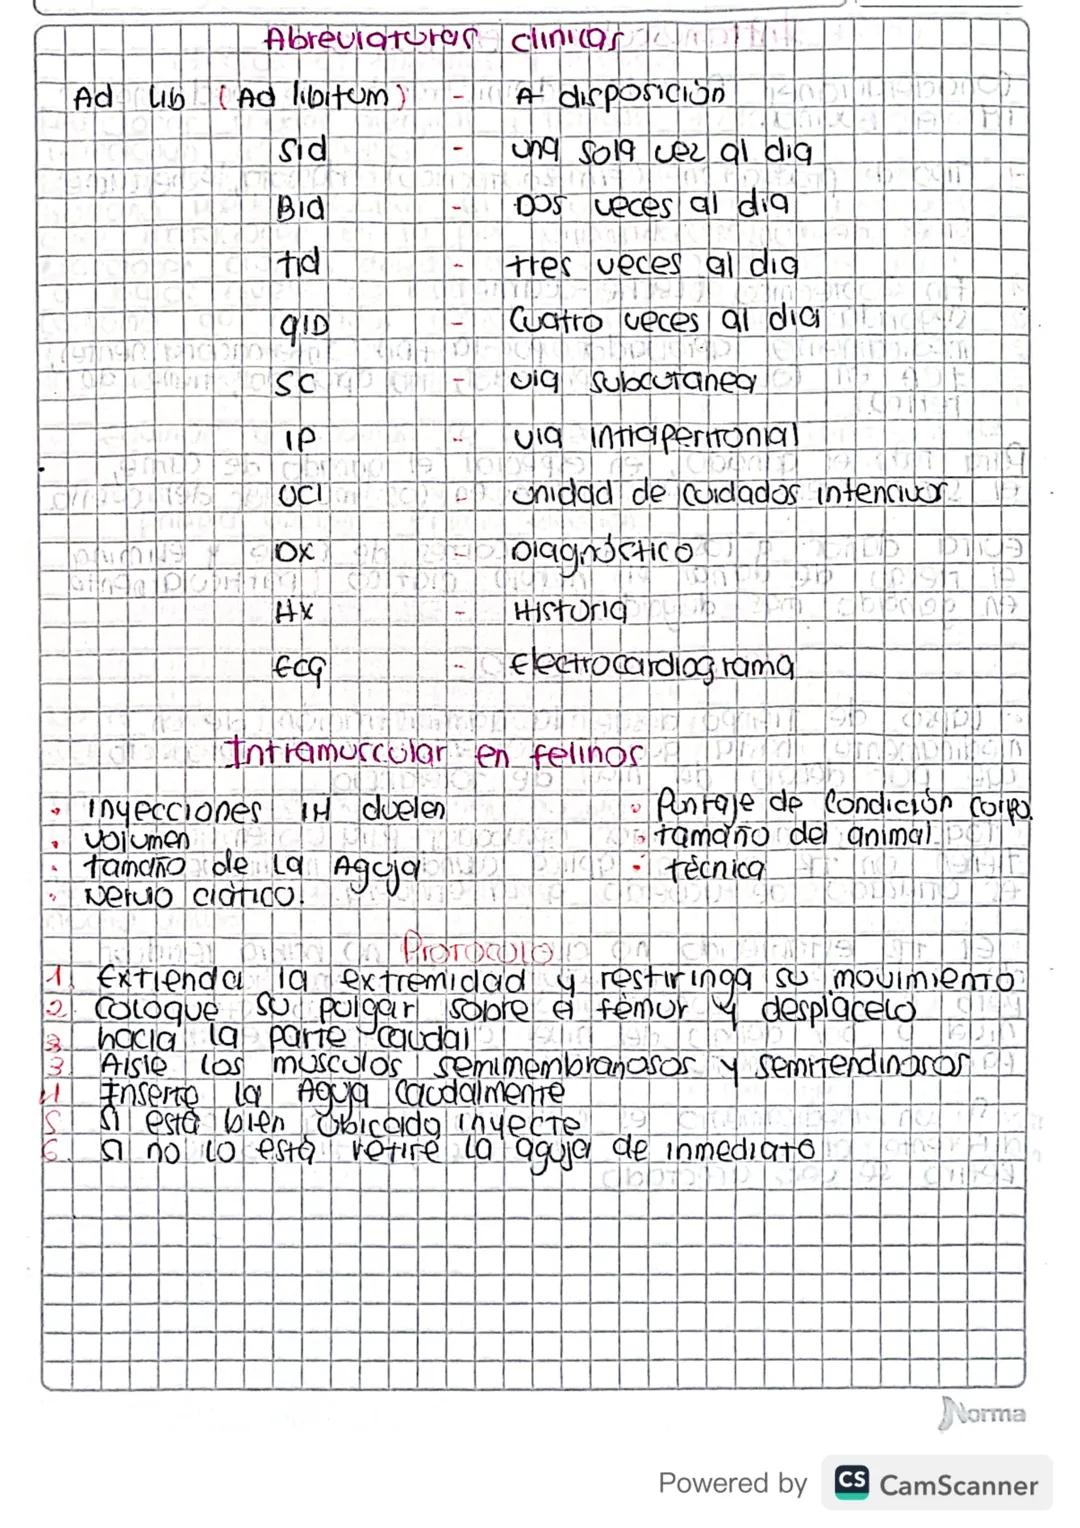 Abreviaturas clinicas
Ad Lib (Ad libitum) - A disposición
Sid - una sola vez al dia
Bid - Dos veces al dia
tid - tres veces al dia
qID - Cuatro veces al dia
SC - via subcutanea
IP - via intraperitonial
UCI - unidad de cuidados intencivos
DX - Diagnóstico
HX - Historia
ECG - Electrocardiograma
Intramuscular en felinos
• inyecciones IM duelen
• volumen
• tamaño de la Aguja
• Nervio ciático.
• Puntaje de Condición corpo.
• tamaño del animal
• técnica
Protocolo
1. Extienda la extremidad y restiringa su movimiento
2. coloque su pulgar sobre el fémur y desplácelo
3 hacia la parte caudal
3. Aisle los músculos semimembranosos y semitendinosos
4 Inserte la Aguja Caudalmente
5 si está bien ubicada inyecte
6. si no lo está retire la aguja de inmediato
Norma
Powered by CS CamScanner